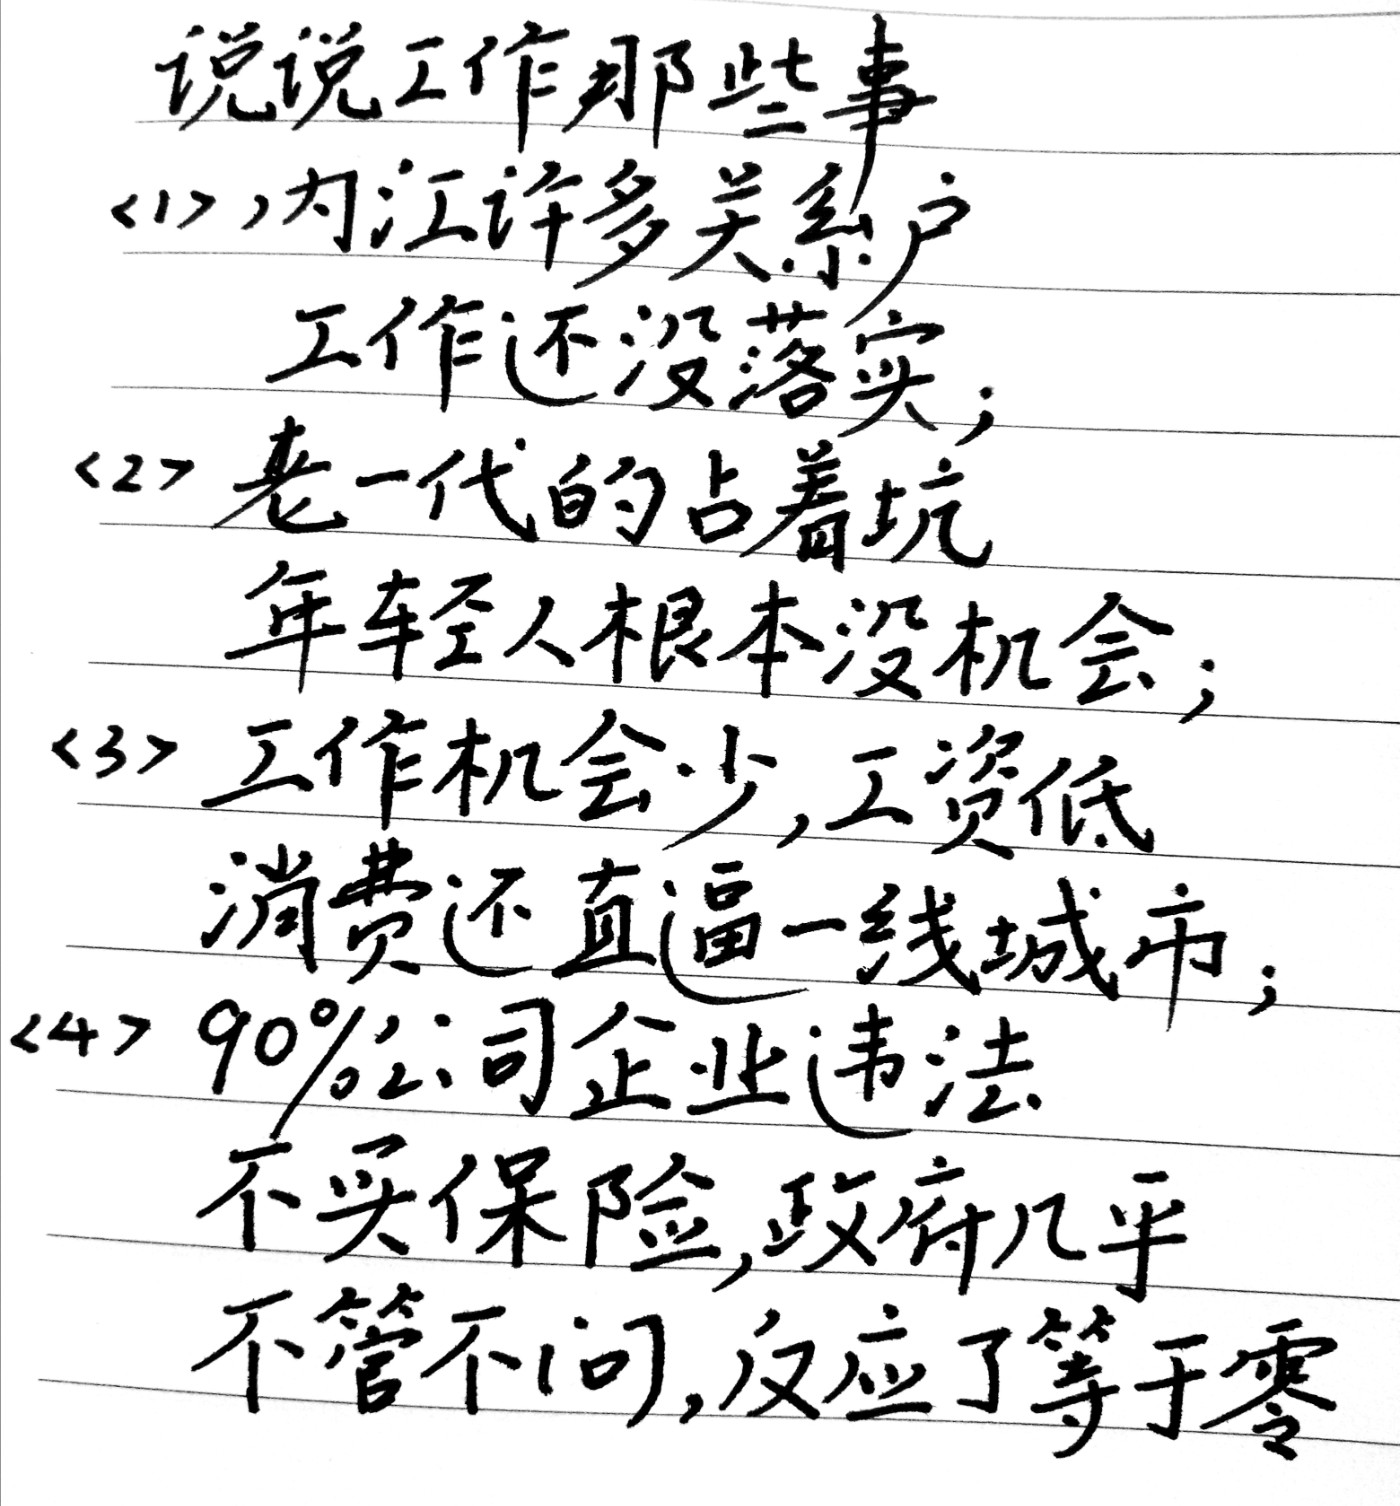 说说工作那些事
<1>,内江许多关系户
工作还没落实;
<2> 老一代的占着坑
年轻人根本没机会;
<3> 工作机会少,工资低
消费还直逼一线城市;
<4> 90%公司企业违法
不买保险,政府几乎
不管不问,反应了等于零